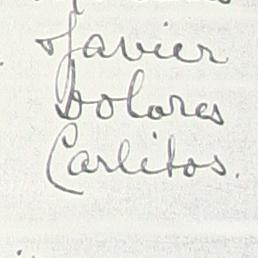 Javier
Dolores
Carlitos.